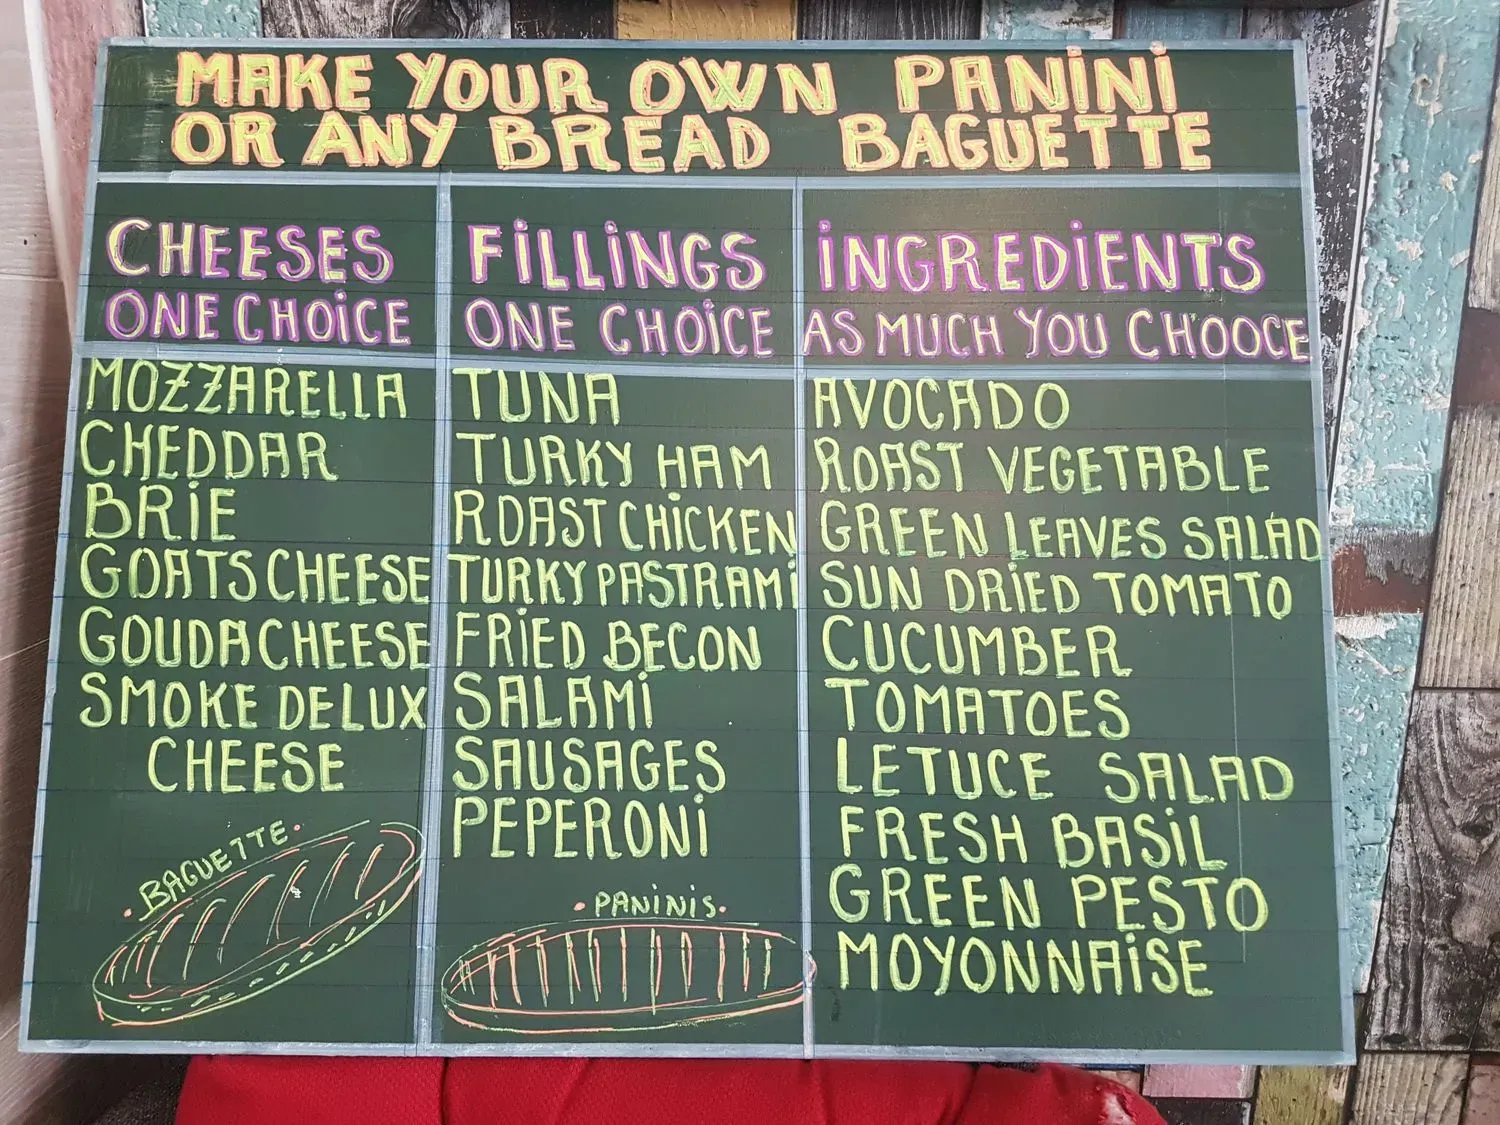 MAKE YOUR OWN PANiNi
OR ANY BREAD BAGUETTE
CHEESES
ONE CHOiCE
MOZZARELLA
CHEDDAR
BRiE
GOATS CHEESE
GOUDA CHEESE
SMOKE DELUX
CHEESE
FiLLiNGS
ONE CHOiCE
TUNA
TURKY HAM
ROAST CHiCKEN
TURKY PASTRAMi
FRiED BECON
SALAMi
SAUSAGES
PEPERONi
iNGREDiENTS
AS MUCH YOU CHOOCE
AVOCADO
ROAST VEGETABLE
GREEN LEAVES SALAD
SUN DRiED TOMATO
CUCUMBER
TOMATOES
LETUCE SALAD
FRESH BASiL
GREEN PESTO
MOYONNAiSE
BAGUETTE.
.PANiNiS.